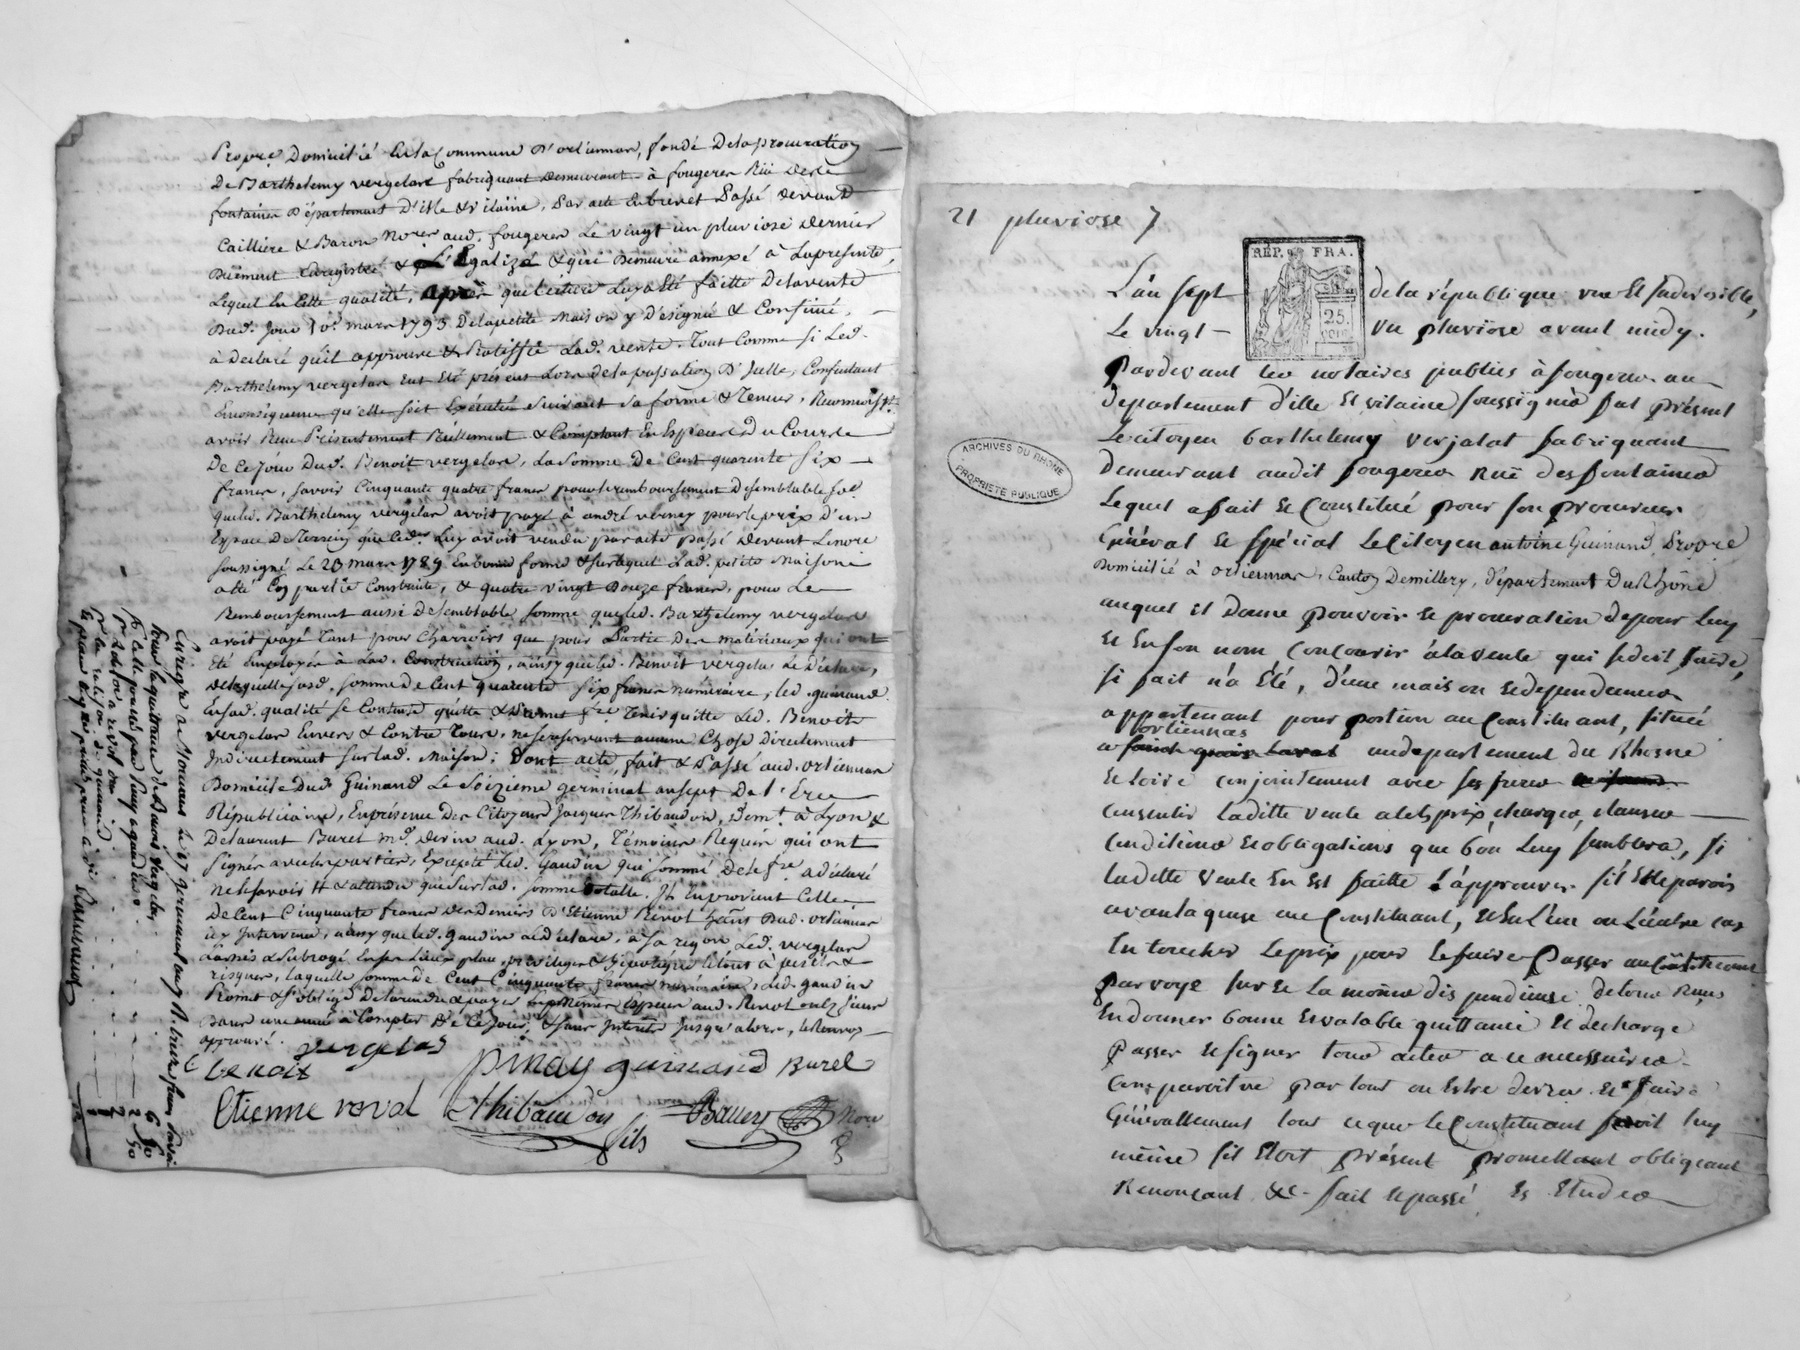 Propre. Domicilié En la Commune D'orliennas, fondé De la procuration
De Barthelemy vergelas fabriquant demeurant à fougeres Rüe Des
fontaines D'épartement D'isle & vilaine, Par acte En brevet Passé devant
Cailliere & Baron Nores aud. fougeres Le vingt un pluviose dernier
Duëment Enregistré & Légalizé & qui Demeure annexé à Lapresente,
Lequel En Cette qualité, après que lecture Luy a Eté faitte Delavente
Dud. Jour 10e mars 1793 Delapetite Maison y Désignée & Confinée,
à Declaré qu'il approuve & Ratiffie Lad. vente. Tout Comme si Led.
Barthelemy vergelas Eut Eté présent Lors de la passation D'Icelle, Consentant
Enconséquence qu'elle soit Exécutée suivant sa forme & Teneur, Reconnoiss.t
avoir Reçu Présentement Réellement & Comptant En Espèces du Cours
De Ce Jour Dud. Benoit vergelas, La somme De Cent quarente Six
francs, savoir Cinquante quatre francs pour le remboursement De semblable
que led. Barthelemy vergelas avoit payé à andré verney pour le prix d'un
Espace De terrein que led. Luy avoit vendu par acte passé Devant Lenore
soussigné Le 20 mars 1789 En bonne forme & sur lequel Lad. petite Maison
a Eté En partie Construite, & quatre vingt Douze francs, pour Le
Remboursement aussi de semblable somme que led. Barthelemy vergelas
avoit payé Tant pour Charrois que pour Partie Des materiaux qui ont
Eté Employés à Lad. Construction, ainsy que led. Benoit vergelas Le Déclare,
De laquelle susd. somme De Cent quarente six francs numéraire, led. guinand
En sad. qualité se Contente quitte & promet fre Tenir quitte Led. Benoit
vergelas Envers & Contre Tous, ne se reservant aucune Chose Directement
Indirectement sur lad. Maison; Dont acte, fait & Passé aud. orliennas
Domicile Dud. Guinand Le Seizieme germinal an sept De l'Ere
Républicaine, En présence Des Citoyens Jacques Thibaudon, Demt. à Lyon &
De laurent Burel md. De vin aud. Lyon, Témoins Requis qui ont
signés avec les parties, Excepté Led. Gaudin qui sommé De le fre a déclaré
ne le savoir & attendu que sur lad. somme totalle. Il En provient Celle
De Cent Cinquante francs Des Deniers D'Etienne Revol Dud. orliennas
icy Intervenu, ainsy que led. Gaudin Le Déclare, Led. vergelas
risques, laquelle somme de Cent Cinquante francs numéraire, Led. gaudin
Promet & s'oblige De la rendre & payer En Mêmes Espèces aud. Revol
Dans une année à Compter De Ce Jour, & sans Interets Jusqu'alors, le Renvoy
approuvé.
benoit vergelas
pinay guinand Burel
Etienne reval Thibaudon fils Bauery Nore
Enregistré à Mornant le 17 germinal an 7
21 pluviose 7
RÉP. FRA.
25.
L'an sept de la république une Et Indivisible,
Le vingt un pluviose avant midy.
Pardevant les notaires publics à fougeres au
Departement d'ille Et vilaine soussignés fut présent
Le citoyen barthelemy verjalat fabriquant
demeurant audit fougeres Rüe des fontaines
Lequel a fait Et Constitué pour son procureur
Général Et spécial Le Citoyen antoine Guinand Propre
Domicilié à orliennas, Canton Demillery, département Du Rhône
auquel il Donne pouvoir Et procuration de pour Luy
Et En son nom Concourir à la vente qui se doit faire,
si fait n'a Eté, d'une maison Et dependances
appartenant pour portion au Constituant, située
orliennas
a au departement du Rhosne
Et loire conjointement avec ses freres
consentir laditte vente à tels prix, charges, clauses
Conditions Et obligations que bon Luy semblera, si
laditte vente En Est faitte l'approuver s'il Elle paroit
avantageuse au Constituant, Et En L'un ou L'autre cas
En toucher Le prix pour le faire Passer au Constituant
par voye sure Et La moins dispendieuse de tous Reçus
En donner bonne Et valable quittance Et decharge
Passer Et signer tous actes a ce necessaires
Comparoitre par tout ou Estre devra Et faire
Générallement tout ce que Le Constituant feroit luy
même s'il Etoit présent promettant obligeant
Renonçant &c. fait Et passé Es Etudes
ARCHIVES DU RHÔNE
PROPRIÉTÉ PUBLIQUE